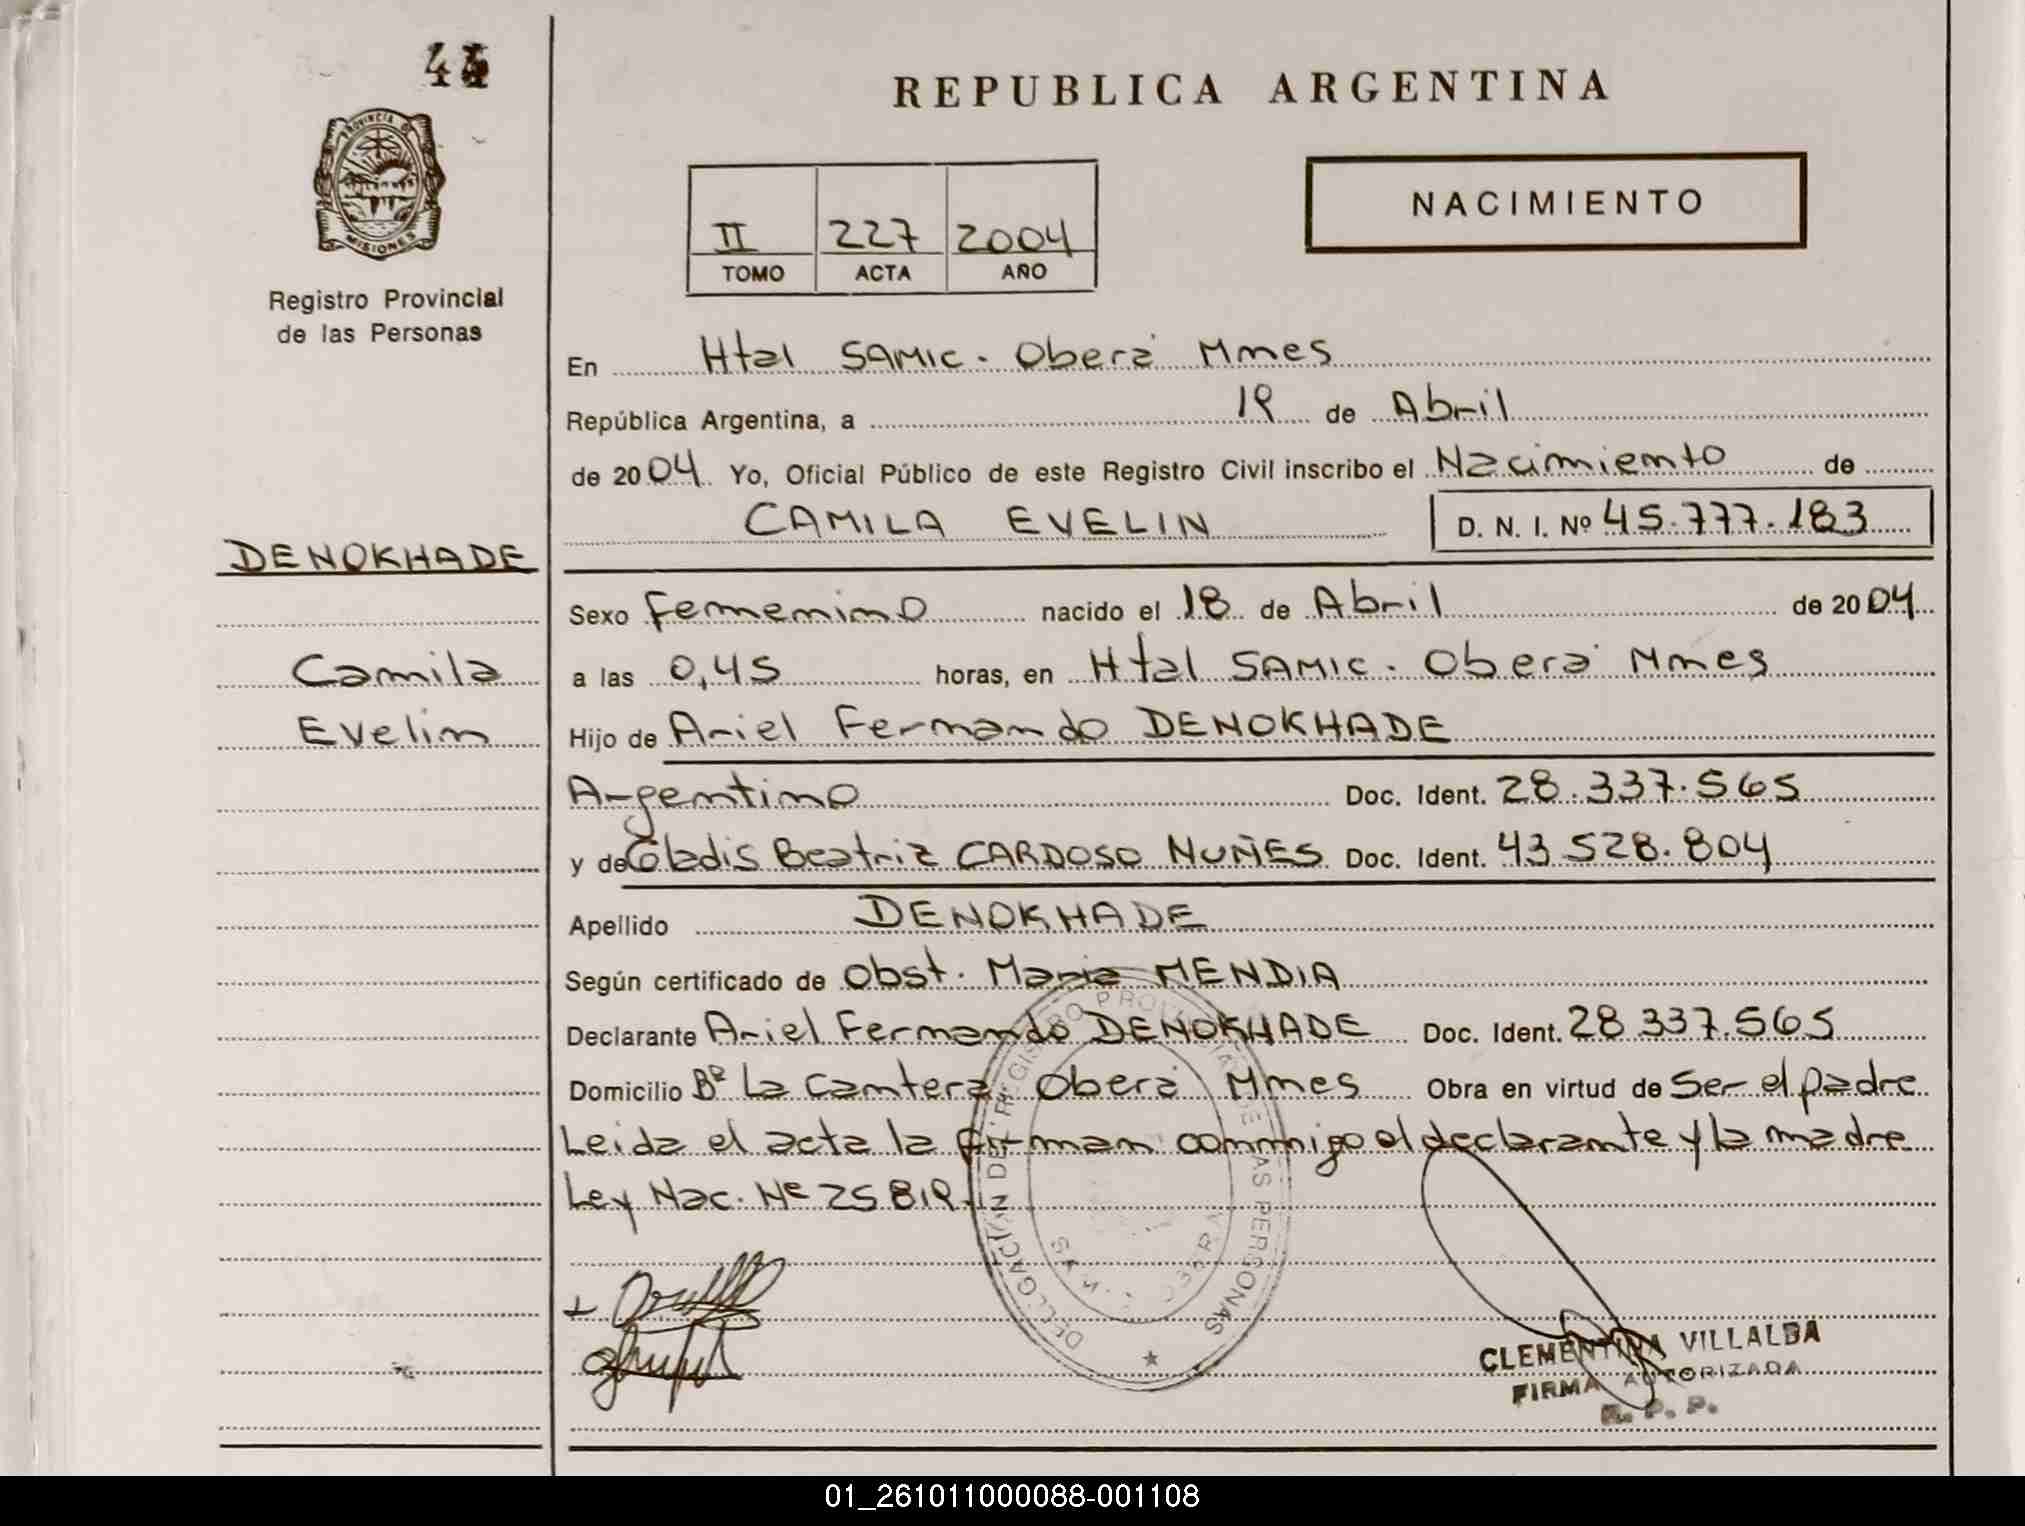 44
REPUBLICA ARGENTINA
PROVINCIA DE
MISIONES
Registro Provincial
de las Personas
NACIMIENTO
II 227 2004
TOMO ACTA AÑO
En Htal SAMIC. Oberá Mnes
República Argentina, a 19 de Abril
de 2004 Yo, Oficial Público de este Registro Civil inscribo el Nacimiento de
CAMILA EVELIN D. N. I. Nº 45.777.183
DENOKHADE
Camila
Evelin
Sexo Femenino nacido el 18 de Abril de 2004
a las 0,45 horas, en Htal SAMIC. Oberá Mnes
Hijo de Ariel Fernando DENOKHADE
Argentino Doc. Ident. 28.337.565
y de Gladis Beatriz CARDOSO NUÑES Doc. Ident. 43.528.804
Apellido DENOKHADE
Según certificado de Obst. Maria MENDIA
Declarante Ariel Fernando DENOKHADE Doc. Ident. 28.337.565
Domicilio Bº La Cantera Oberá Mnes Obra en virtud de Ser el padre
Leida el acta la firman conmigo el declarante y la madre
Ley Nac. Nº 25819.
DELEGACIÓN DEL REGISTRO PROVINCIAL DE LAS PERSONAS
CLEMENTINA VILLALBA
FIRMA AUTORIZADA
R. P. P.
01_261011000088-001108